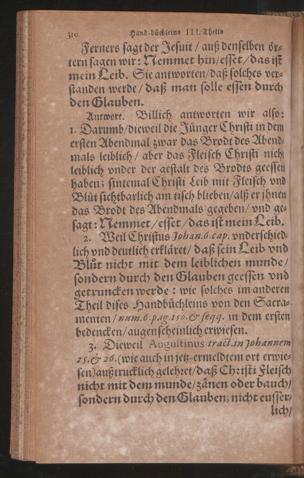 310 Hand-büchleins III. Theils
Ferners sagt der Jesuit / auß denselben ör-
tern sagen wir: Nemmet hin/esset/das ist
mein Leib. Sie antworten/daß solches ver-
standen werde / daß man solle essen durch
den Glauben.
Antwort. Billich antworten wir also:
1. Darumb/dieweil die Jünger Christi in dem
ersten Abendmal zwar das Brodt des Abend-
mals leiblich / aber das Fleisch Christi nicht
leiblich vnder der gestalt des Brodts geessen
haben: sintemal Christi Leib mit Fleisch vnd
Blüt sichtbarlich am tisch blieben/alß er jhnen
das Brodt des Abendmals gegeben / vnd ge-
sagt: Nemmet/esset/das ist mein Leib.
2. Weil Christus Johan. 6. cap. vnderschied-
lich vnd deutlich erkläret/daß sein Leib vnd
Blüt nicht mit dem leiblichen munde/
sondern durch den Glauben geessen vnd
getruncken werde: wie solches im anderen
Theil dises Handbüchleins von den Sacra-
menten / num. 6. pag. 156. & seqq. in dem ersten
bedencken/augenscheinlich erwiesen.
3. Dieweil Augustinus tract. in Johannem
25. & 26. (wie auch in jetz-ermeldtem ort erwie-
sen) außtrucklich gelehret/daß Christi Fleisch
nicht mit dem munde/zänen oder bauch/
sondern durch den Glauben; nicht eusser-
lich/